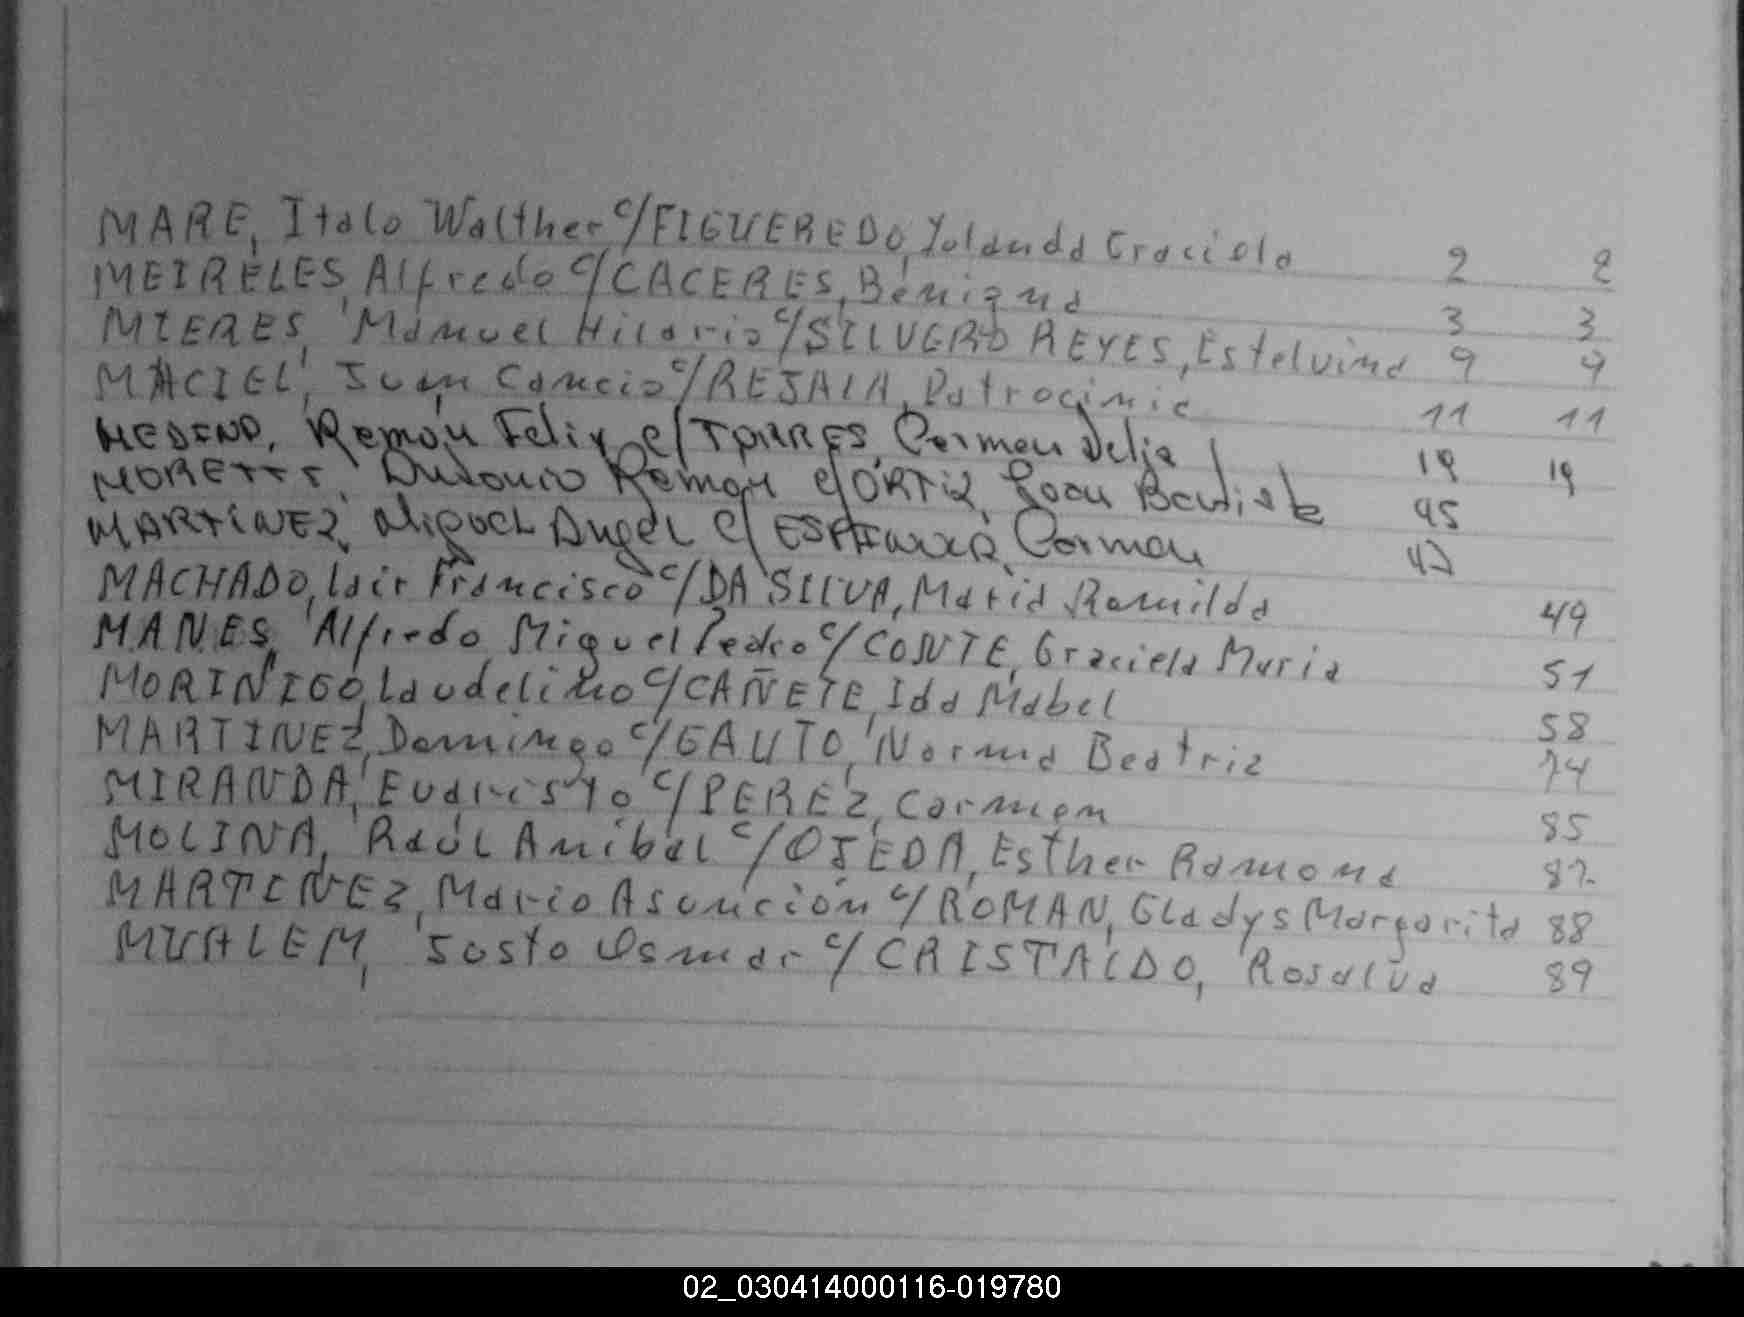 MARE, Italo Walther c/FIGUEREDO, Yolanda Graciela 2 2
MEIRELES, Alfredo c/CACERES, Benigna 3 3
MIERES, Manuel Hilario c/SILVERO REYES, Estelvina 9 9
MACIEL, Juan Cancio c/REJALA, Patrocinia 11 11
MEDINA, Ramón Felix c/TORRES, Carmen Delia 19 19
MORETTI, Antonio Ramon c/ORTIZ, Juan Bautista 45
MARTINEZ, Miguel Angel c/ Carmen 47
MACHADO, Lair Francisco c/DA SILVA, Maria Romilda 49
MANES, Alfredo Miguel Pedro c/CONTE, Graciela Maria 51
MORINIGO, Laudelino c/CAÑETE, Ida Mabel 58
MARTINEZ, Domingo c/GAUTO, Norma Beatriz 74
MIRANDA, Evaristo c/PEREZ, Carmen 85
MOLINA, Raúl Anibal c/OJEDA, Esther Ramona 87
MARTINEZ, Mario Asunción c/ROMAN, Gladys Margarita 88
MUALEM, Justo Osmar c/CRISTALDO, Rosalva 89
02_030414000116-019780